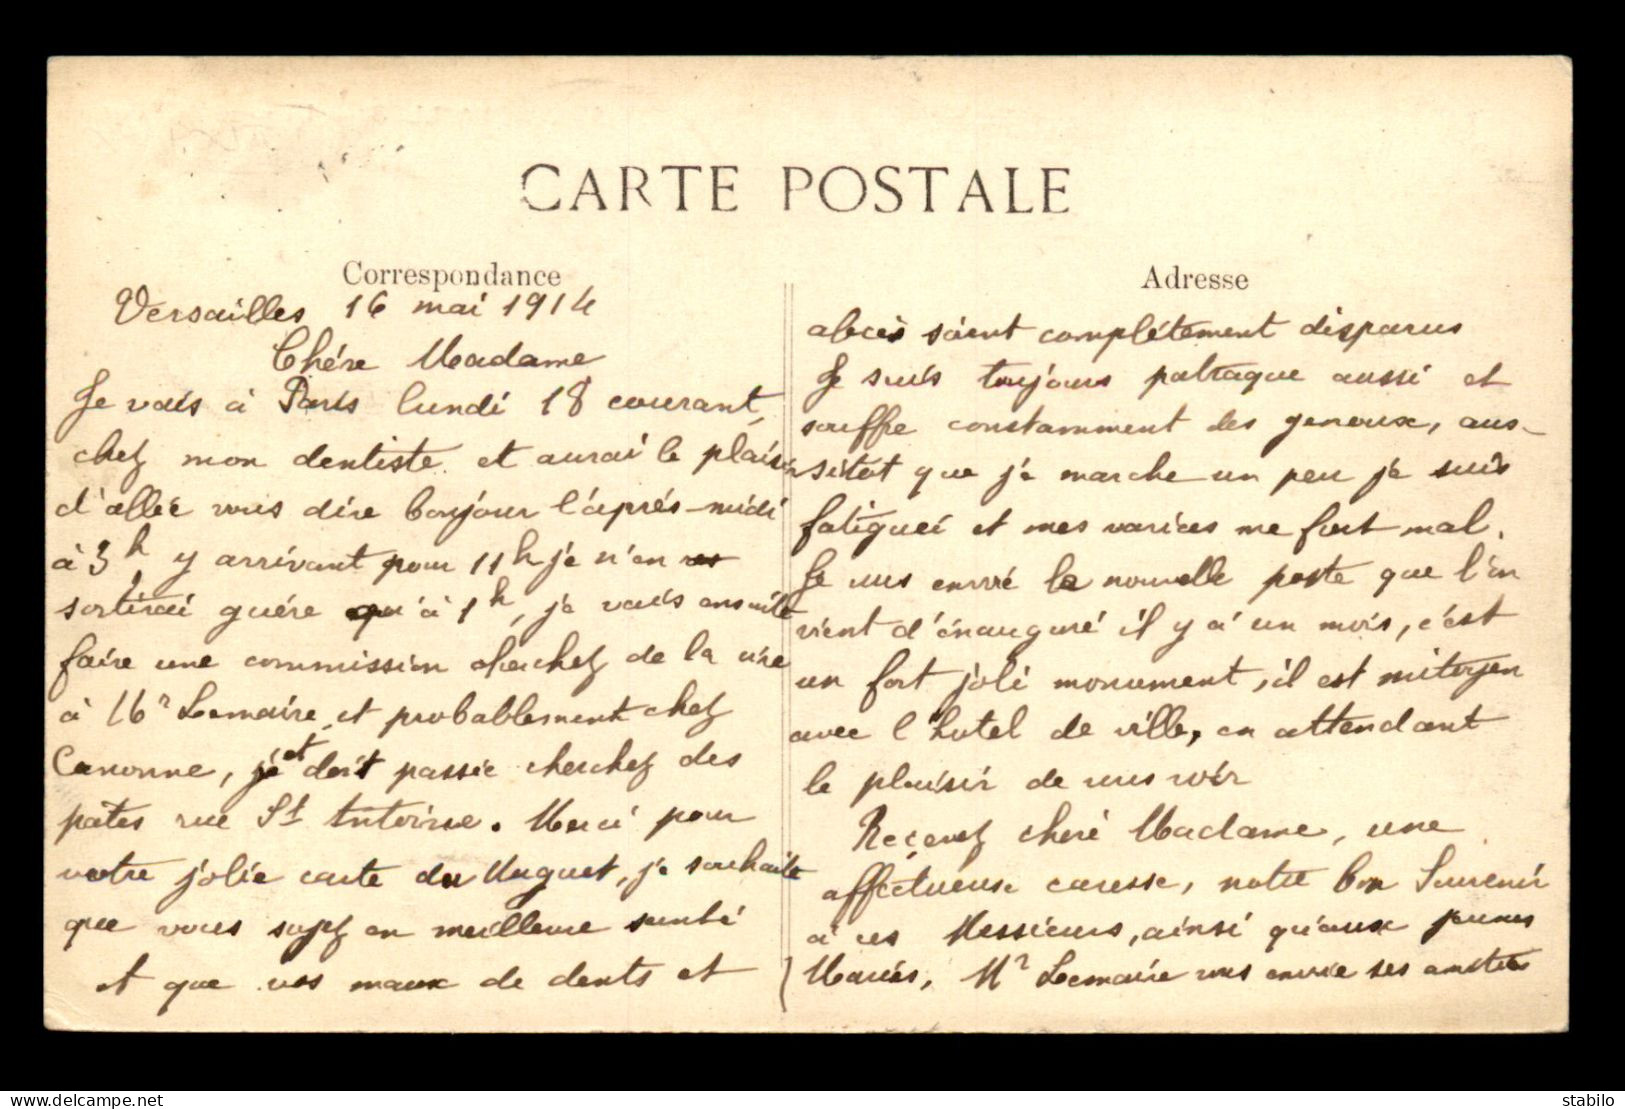 CARTE POSTALE
Correspondance
Versailles 16 mai 1914
Chére Madame
Je vais à Paris lundi 18 courant,
chez mon dentiste et aurai le plaisir
d'allée vous dire bonjour l'après-midi
à 3h, y arrivant pour 11h je n'en
sortirai guére qu'à 1h, je vais ensuite
faire une commission cherchez de la
à Mr Lemaire, et probablement chez
Canonne, et doit passée cherchez des
pâtes rue St Antoine. Merci pour
votre jolie carte du Muguet, je souhaite
que vous soyez en meilleure santé
et que vos maux de dents et
Adresse
abcès soient complétement disparus
Je suis toujours patraque aussi et
souffre constamment des genoux, aus-
sitôt que je marche un peu je suis
fatiguée et mes varices me font mal.
Je vous envoie la nouvelle poste que l'on
vient d'énauguré il y a un mois, c'est
un fort joli monument, il est mitoyen
avec l'hotel de ville, en attendant
le plaisir de vous voir
Recevez chère Madame, une
affectueuse caresse, notre bon Souvenir
à ces Messieurs, ainsi qu'aux jeunes
Mariés, Mr Lemaire vous envoie ses amitiés
stabilo